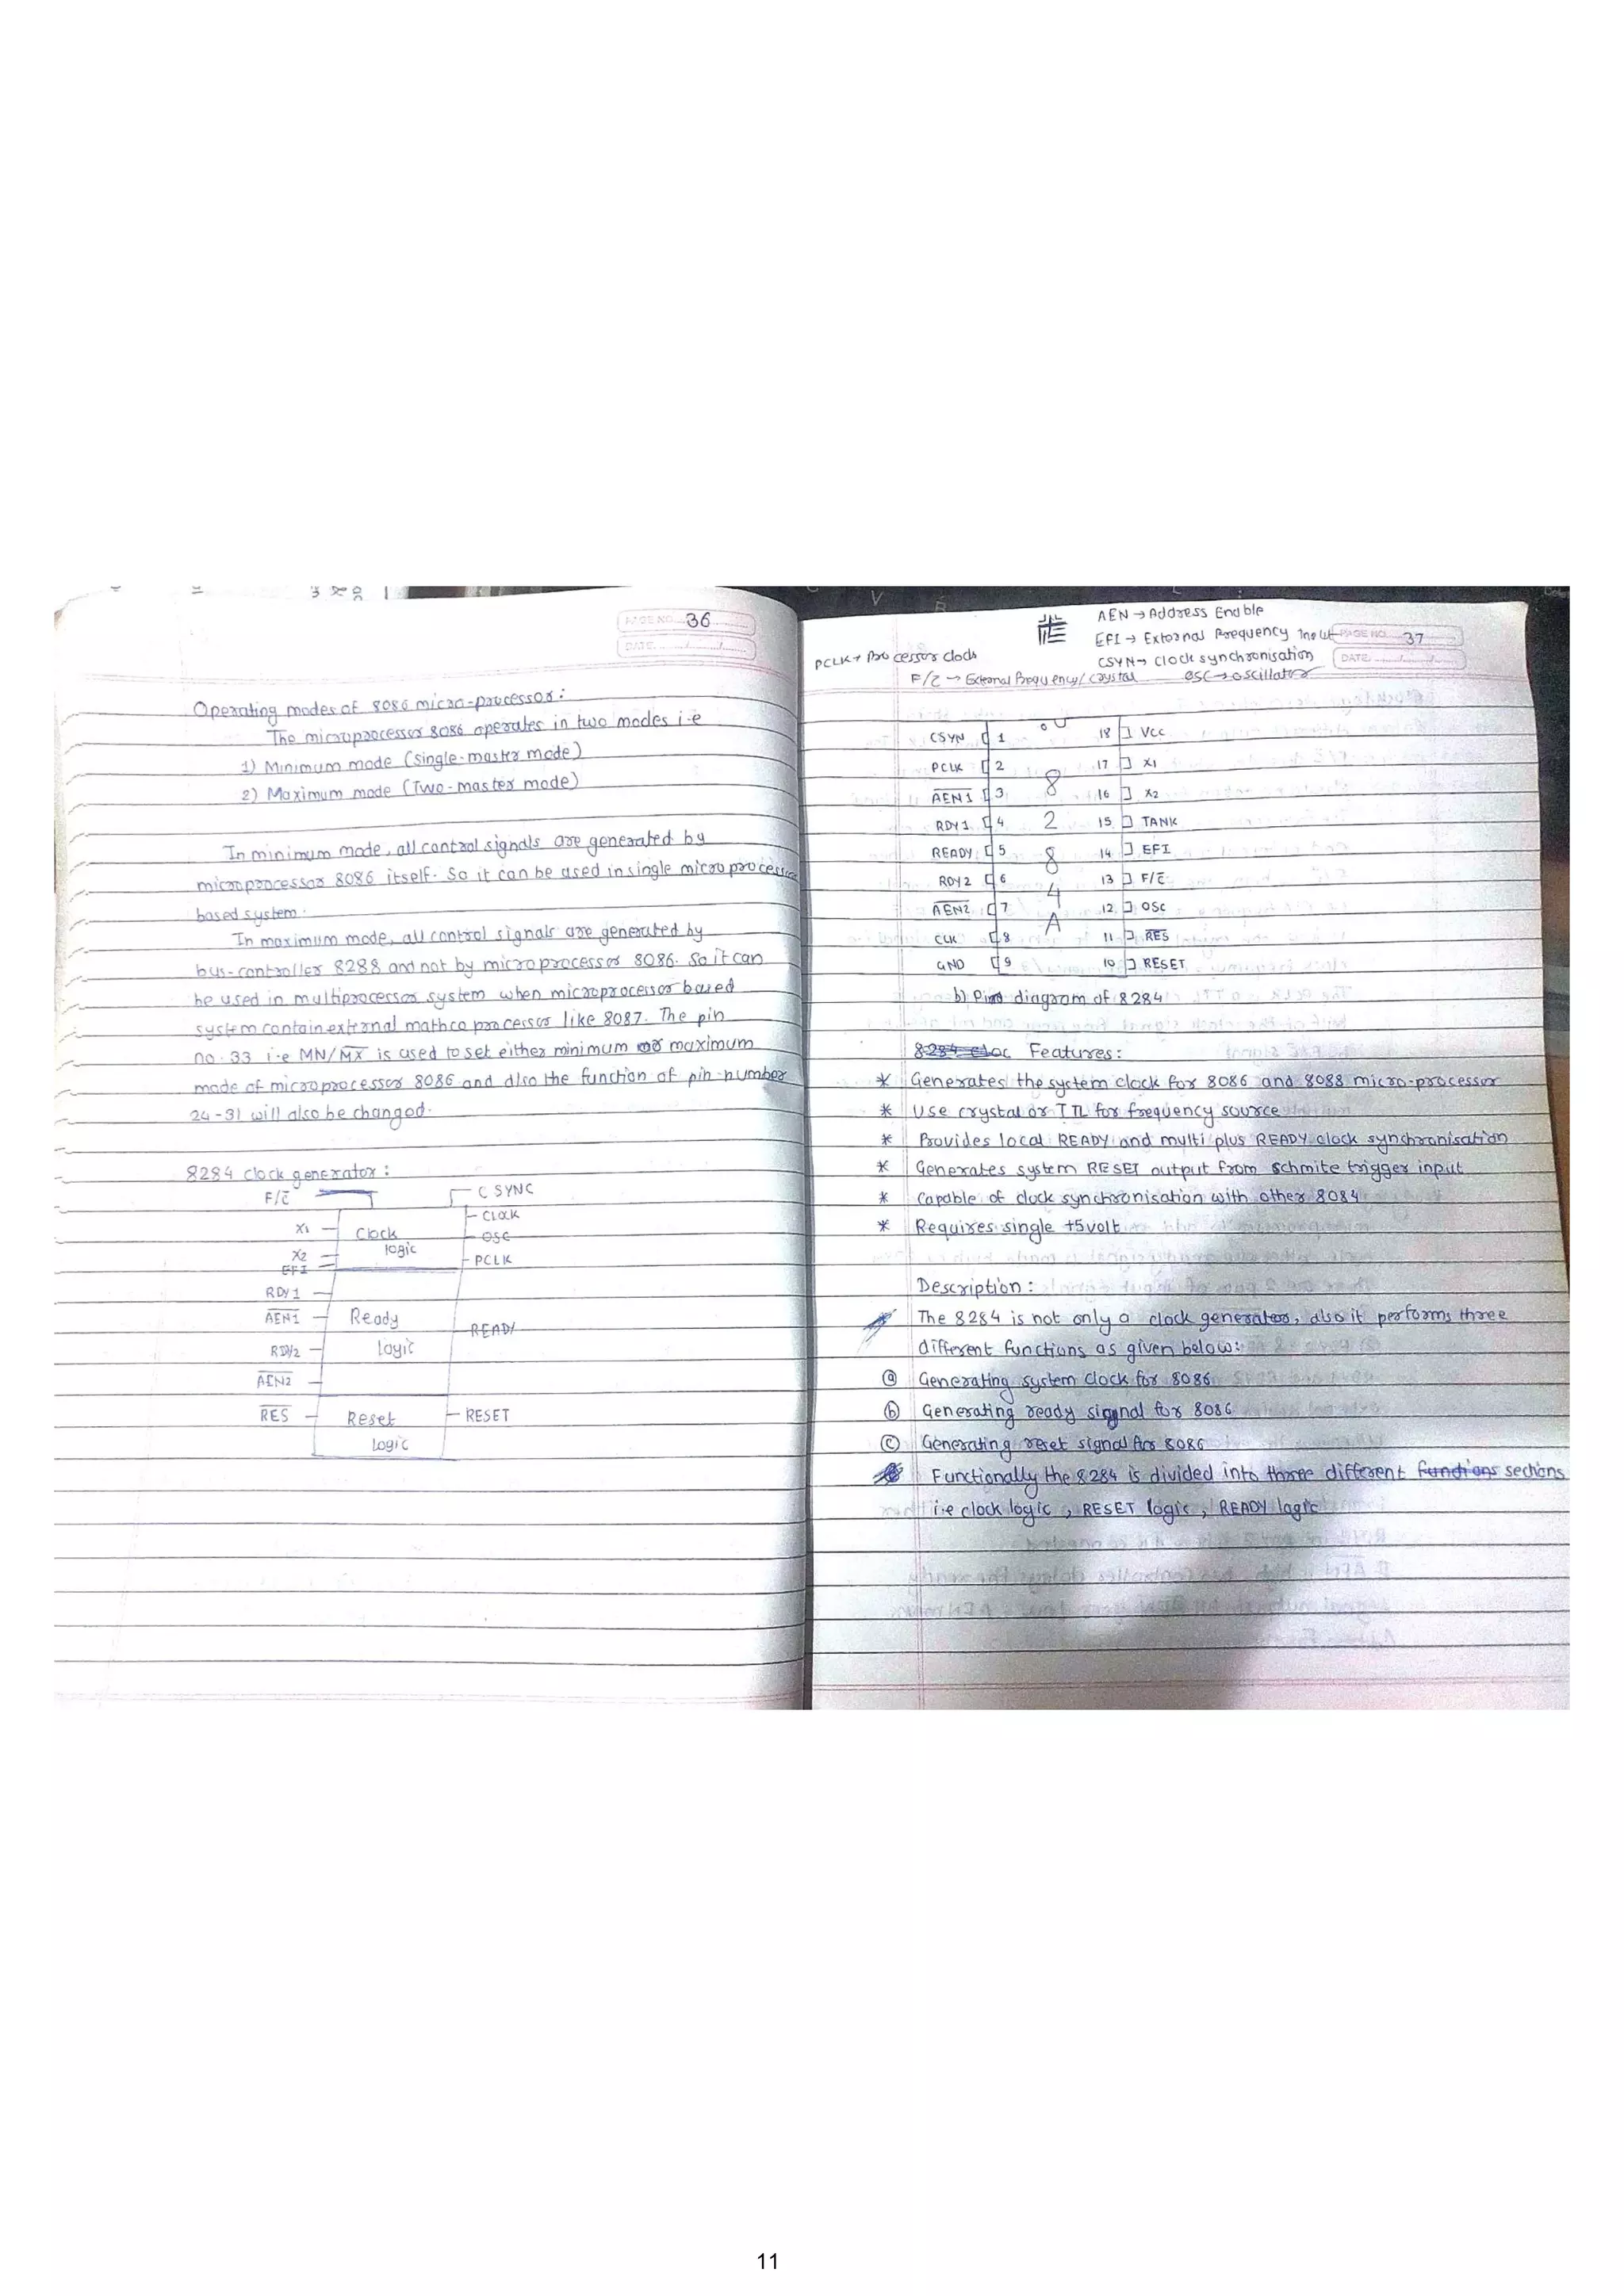 PAGE NO. 36
DATE
Operating modes of 8086 micro-processor:
The microprocessor 8086 operates in two modes i.e
1) Minimum mode (Single-master mode)
2) Maximum mode (Two-master mode)
In minimum mode, all control signals are generated by
microprocessor 8086 itself. So it can be used in single micro processor
based system.
In maximum mode, all control signals are generated by
bus-controller 8288 and not by microprocessor 8086. So it can
be used in multiprocessor system when microprocessor based
system contain external mathco processor like 8087. The pin
no. 33 i.e MN/M̅X̅ is used to set either minimum or maximum
mode of microprocessor 8086 and also the function of pin-number
24-31 will also be changed.
8284 clock generator:
F/C̅
C SYNC
Clock
X1
Clock
logic
OSC
X2
PCLK
EFI
RDY 1
A̅E̅N̅1̅
Ready
READY
RDY2
logic
A̅E̅N̅2̅
R̅E̅S̅
Reset
RESET
Logic
AEN → Address Enable
EFI → External Frequency Input
PAGE NO. 37
PCLK → Processor clock
CSYN → Clock synchronisation
DATE
F/C̅ → External Frequency/ Crystal
OSC → oscillator
CSYN 1 18 Vcc
PCLK 2 17 X1
A̅E̅N̅1̅ 3 8 16 X2
RDY 1 4 2 15 TANK
READY 5 8 14 EFI
RDY 2 6 4 13 F/C̅
A̅E̅N̅2̅ 7 A 12 OSC
CLK 8 11 R̅E̅S̅
GND 9 10 RESET
b) Pin diagram of 8284
8284 cloc Features:
* Generates the system clock for 8086 and 8088 micro-processor
* Use crystal or TTL for frequency source
* Provides local READY and multi plus READY clock synchronisation
* Generates system RESET output from schmite trigger input
* Capable of clock synchronisation with other 8084
* Requires single +5volt
Description:
The 8284 is not only a clock generator, also it performs three
different functions as given below:
ⓐ Generating system clock for 8086
ⓑ Generating ready signal for 8086
ⓒ Generating reset signal for 8086
Functionally the 8284 is divided into three different functions sections
i.e clock logic, RESET logic, READY logic
11